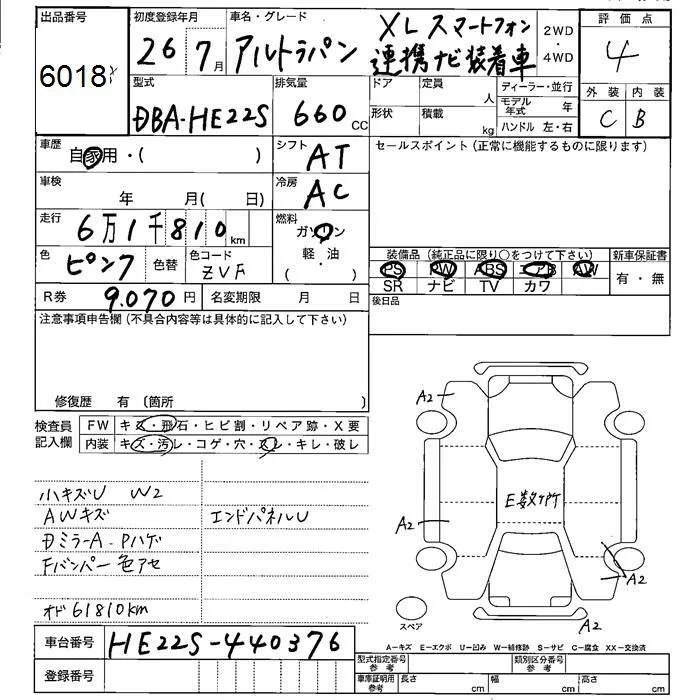 出品番号 初度登録年月 車名・グレード 評価点
6018
26 7月 アルトラパン XLスマートフォン 2WD
連携ナビ装着車 ・4WD
4
型式 排気量 ドア 定員 人 ディーラー・並行 外装 内装
DBA-HE22S 660cc 形状 積載 kg モデル年式 年 C B
ハンドル 左・右
車歴 自家用・( ) シフト AT セールスポイント(正常に機能するものに限ります)
車検 年 月( 日) 冷房 AC
走行 6万1千810km 燃料 ガソリン
軽・油
( )
色 ピンク 色替 色コード ZVF 装備品(純正品に限り○をつけて下さい) 新車保証書
PS PW ABS エアB AW 有・無
SR ナビ TV カワ
R券 9.070円 名変期限 月 日 後日品
注意事項申告欄(不具合内容等は具体的に記入して下さい)
修復歴 有〔箇所 〕
検査員 FW キズ・飛石・ヒビ割・リペア跡・X要
記入欄 内装 キズ・汚レ・コゲ・穴・スレ・キレ・破レ
小キズU W2
AWキズ エンドパネルU
DミラーA.Pハゲ
Fバンパー色アセ
オド61810km
A2
A2
E数ヶ所
A2
A2
スペア
A-キズ E-エクボ U-凹み W-補修跡 S-サビ C-腐食 XX-交換済
車台番号 HE22S-440376
登録番号
型式指定番号 参考 類別区分番号 参考
車庫証明用 参考 長さ cm 幅 cm 高さ cm